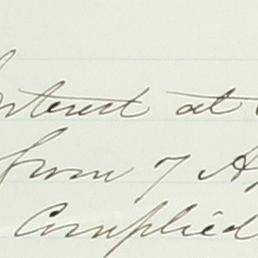 Interest at
from 7 Ap
Complied